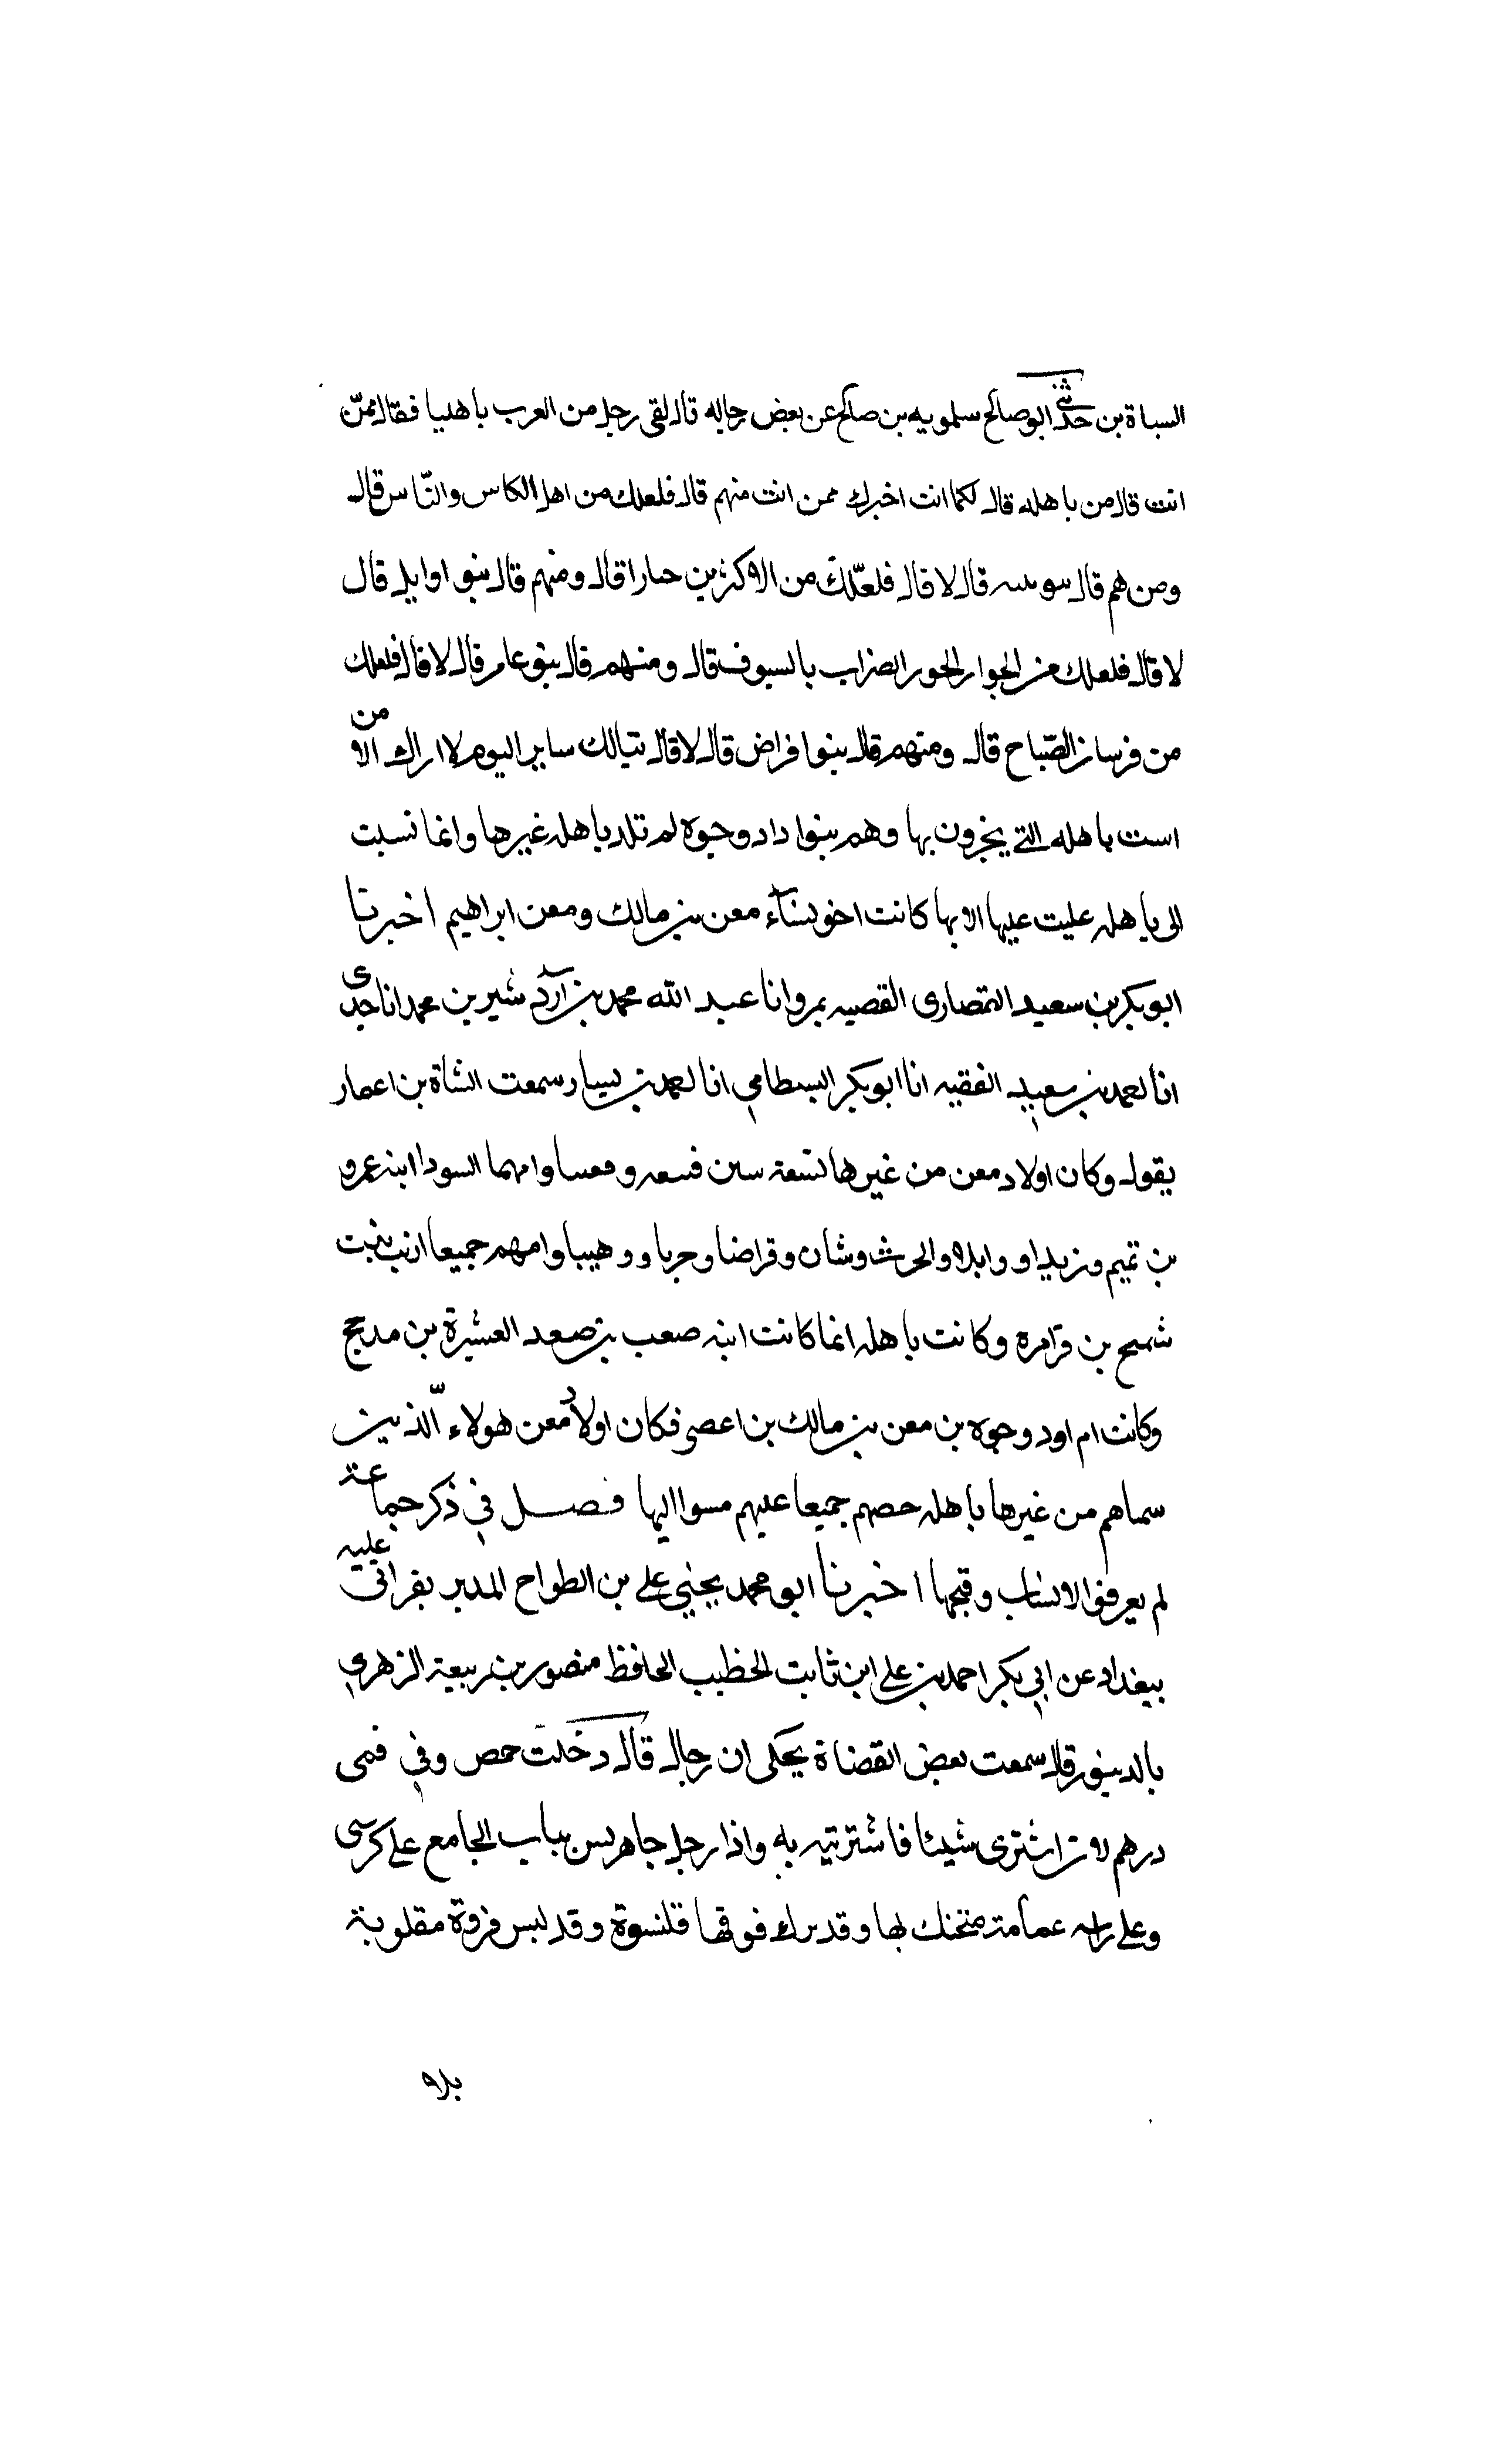 السباة بن حدثني ابو صالح سلمويه بن صالح عن بعض رجاله قال لقى رجل من العرب باهليا فقال ممّن
انت قال من باهله قال لكما انت اخبرك ممن انت منهم قال فلعلك من اهل الكاس والنّاس قال
ومن هم قال قال لا قال فلعلّك من الاكثرين حمارا قال ومنهم قال بنو اوايل قال
لا قال فلعلك من الجوار الحور الضراب بالسيوف قال ومنهم قال بنو عامر قال لا قال فلعلك
من فرسان الصّباح قال ومنهم قال بنوا فراض قال لا قال تبالك ساير اليوم لا اراك الا من
است باهله التي يخرون بها وهم بنوا داد وجوه لم تلد باهله غيرها وانما نسبت
الى باهله عليت عليها لانها كانت معن بن مالك ومعن ابراهيم اخبرنا
ابو بكر بن سعيد القصيه بمرو انا عبد الله محمد بن اردشير بن محمد انا جدى
انا احمد بن سعيد الفقيه انا ابو بكر البسطامي انا احمد بن سيار سمعت الشاة بن اعمار
يقول وكان اولاد معن من غيرها وامهما السودا ابنه عمرو
بن تميم وزيدا ووايلا والحرث وشان وقراضا وحربا ووهيبا وامهم جميعا ارنب بنت
شمح بن قرامره وكانت باهله انما كانت ابنه صعب بن صعد العشيرة بن مدحج
وكانت ام اود وجوه بن معن بن مالك بن اعصى فكان اولاد معن هولاء الّذين
سماهم من غيرها باهله جميعا عليهم اليها فصل في ذكر جماعة
لم يعرفوا الانساب وقبحها اخبرنا ابو محمد يحيى علي بن الطواح المدير بقراتى عليه
ببغداد عن ابي بكر احمد بن علي ابن ثابت الخطيب الحافظ منصور بن ربيعة الزهري
بالدينور قال سمعت بعض القضاة يحكى ان رجال قال دخلت حمص وفي فمى
درهم لان اشترى شيئا فاشتريته به واذا رجل بباب الجامع على كرسى
وعلى راسه عمامة متحنك بها وقد برك فوقها قلنسوة وقد لبس فروة مقلوبة
بلا